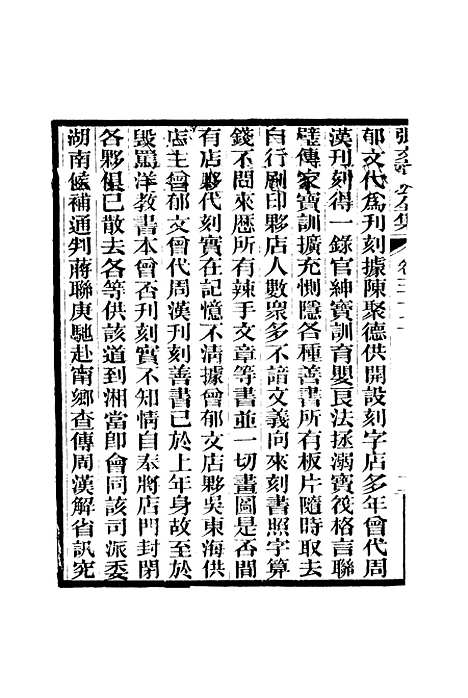 郁文代爲刊刻據陳聚德供開設刻字店多年曾代周
漢刊刻得一錄官紳寶訓育嬰良法拯溺寶筏格言聯
璧傳家寶訓擴充惻隱各種善書所有板片隨時取去
自行刷印夥店人數衆多不諳文義向來刻書照字算
錢不問來歷所有辣手文章等書並一切畫圖是否間
有店夥代刻實在記憶不淸據曾郁文店夥吳東海供
店主曾郁文曾代周漢刊刻善書已於上年身故至於
毀罵洋教書本曾否刊刻實不知情自奉將店門封閉
各夥俱已散去各等供該道到湘當卽會同該司派委
湖南候補通判蔣聯庚馳赴甯鄉查傳周漢解省訊究